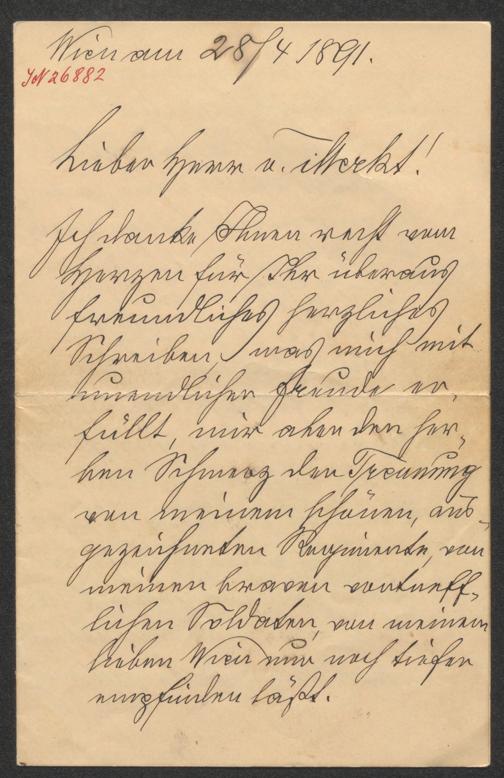 Wien am 28/4 1891.
JN 26882
Lieber Herr v. Merkt!
Ich danke Ihnen recht vom
Herzen für Ihr überaus
freundliches herzliches
Schreiben, was mich mit
unendlicher Freude er-
füllt, mir aber den her-
ben Schmerz der Trennung
von meinem schönen, aus-
gezeichneten Regimente, von
meinen braven vortreff-
lichen Soldaten, von meinem
lieben Wien nur noch tiefer
empfinden läßt.